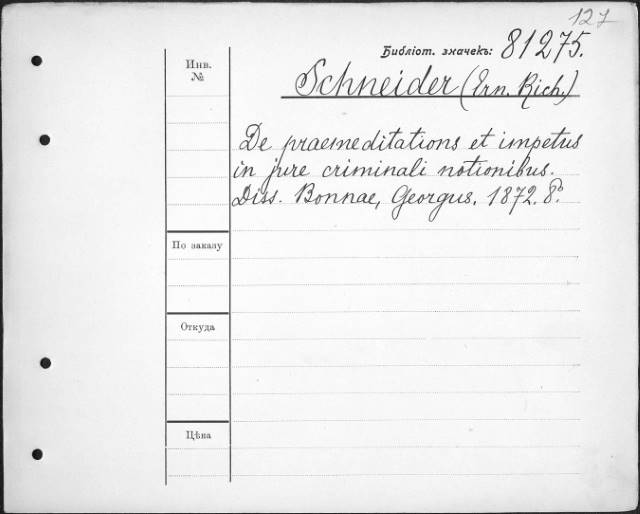 127
Библіот. значекъ: 81275.
Инв.
№
Schneider (Ern. Rich.)
De praemeditations et impetus
in jure criminali notionibus.
Diss. Bonnae, Georgus, 1872. 8°.
По заказу
Откуда
Цѣна